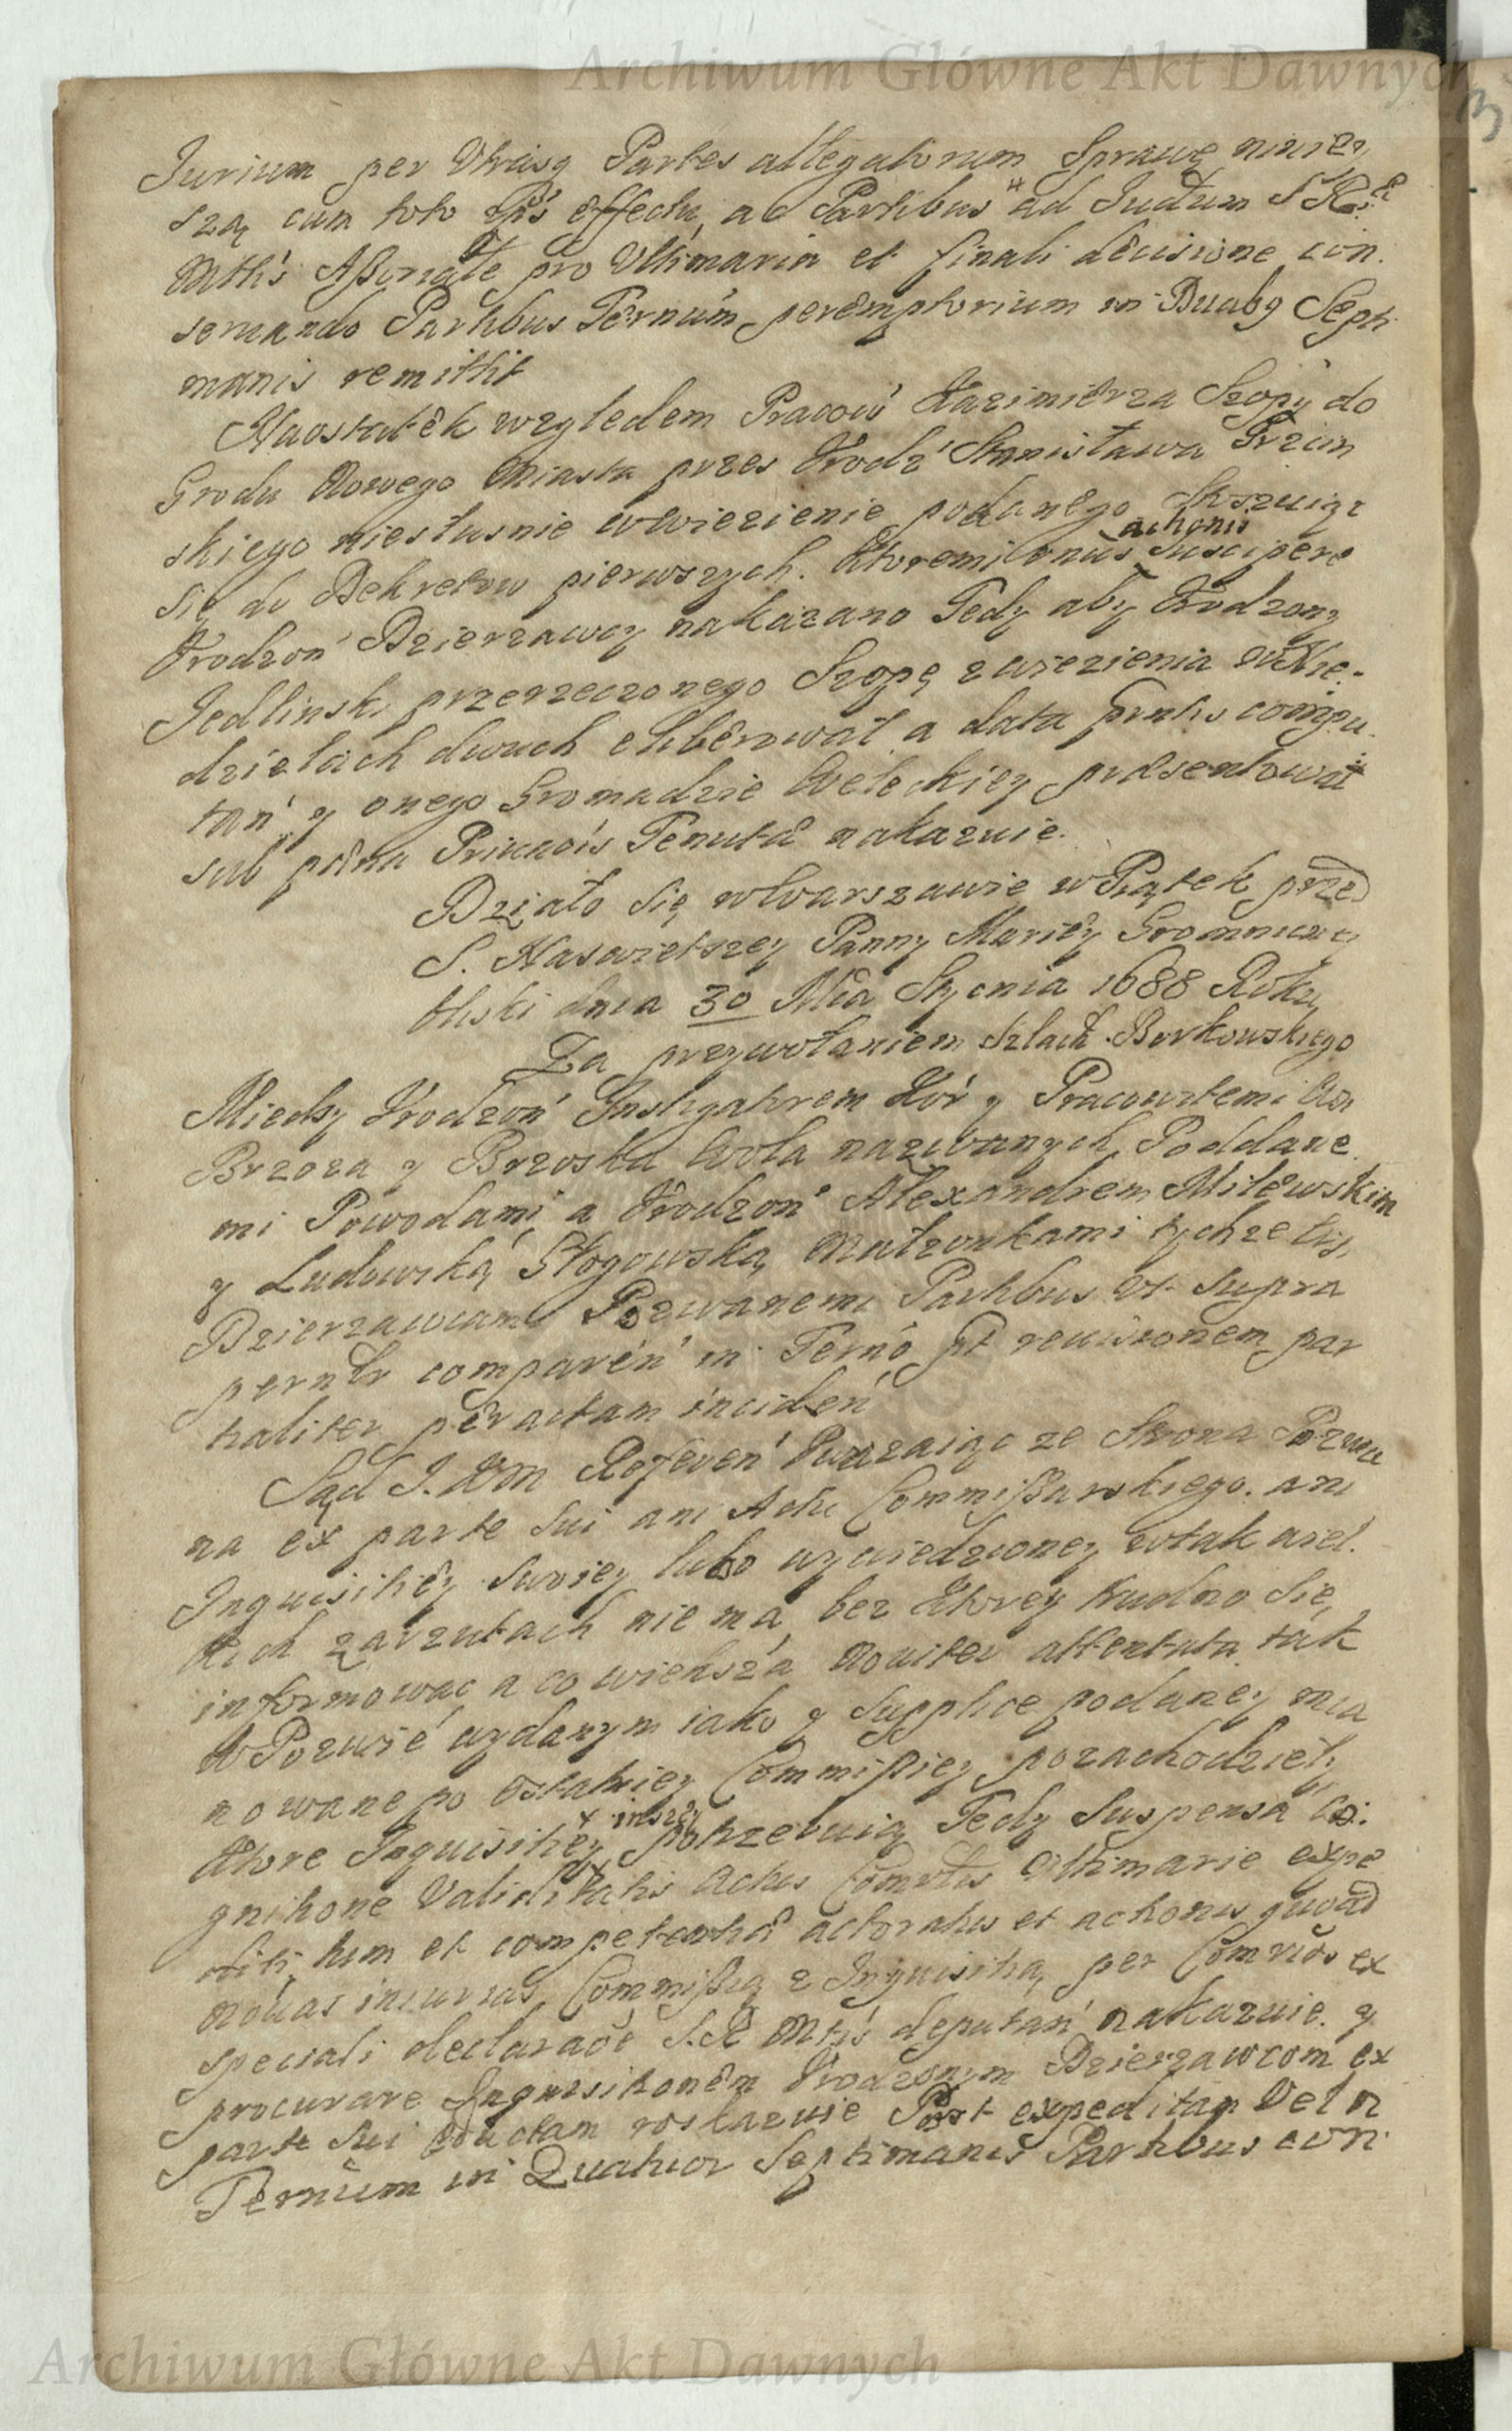 Archiwum Główne Akt Dawnych
3
Jurium per Utrasq Partes allegatorum Sprawę nimieÿ
szą cum toto effectu, ac Partibus ad Judum S R
Mtis Assoriale pro Ultimaria et finali decisione con.
servando Partibus Ternum peremptorium in Duabg Septi
manis remittit
Naostatek względem Pracow Kazimierza Szopy do
Grodu Nowego Miasta przes Urodz Stanisława Grzim
skiego niesłusnie wwiezienie podanego Stoszuiąc
się do Dekretow pierwszych. Ktoremi onus actionis suscipere
Urodzon Dzierzawcy nakazano Tedy aby Urodzony
Jedlinski przerzeczonego Szopę zwiezienia w Nie-
dzielach dwuch eliberował a data pntis compu.
tan y onego Gromadzie Weleckiey presentował
sub pena Priuaois Tenutæ nakazuie.
Działo się wWarszawie w Piątek przed
S. Naswietszey Panny Mariey Gromniczney
bliski dnia 30 Mca Stycnia 1688 Roku
Za przywołaniem Szlach. Borkowskiego
Miedzy Urodzon Instigatorem Kor y Pracowitemi Wsi
Brzoza y Brzoska Wola nazwanych Poddane.
mi Powodami a Urodzon Alexandrem Milewskim
y Ludwiką Głogowską Małzonkami tychze Wsi,
Dzierzawcami Pozwanemi Partibus ut supra
pernlr comparen in Terno pt reuisionem par
tialiter peractam inciden
Sąd J. KM Referen Uwazaiąc ze Strona Pozwa
na ex parte sui ani Actu Commissarskiego. ani
Inquisitiey swoiey lubo wywiedzioney wtak wiel.
kich zarzutach nie ma, bez Ktorey trudno sie,
informowac a co wieksza Nouiter attentata tak
w Pozwie wydanym iako y Supplice podaney mia
nowane po ostatniey Commissiey pozachodzieły
Ktore Inquisitiey x inszey potrzebuią Tedy Suspensa Co:
gnitione Validitatis Actus Comrlis Ultimarie expe
diti, tum et competentia actoratus et actionis quoad
nouas iniurias, Commissią z Inquisitią per Comrios ex
speciali declaraoe S.R Mtis deputan nakazuie. y
procurare Inquisitionem Urodzonym Dzierzawcom ex
parte sui eductam roskazuie Post expeditam Vel n
Ternum in Quatuor Septimanis Partibus con
Archiwum Główne Akt Dawnych